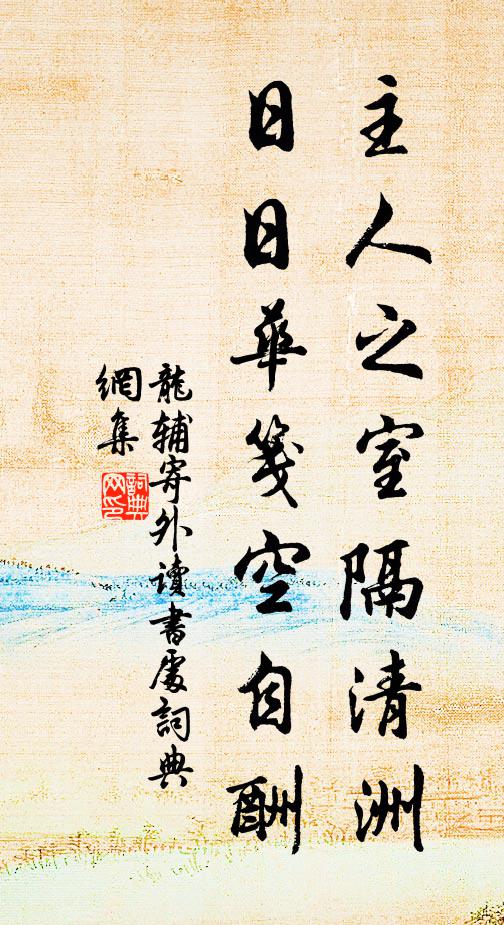 主人之室隔清洲
日日華箋空自酬
龍輔寄外讀書處詞典
網集
詞典
网印